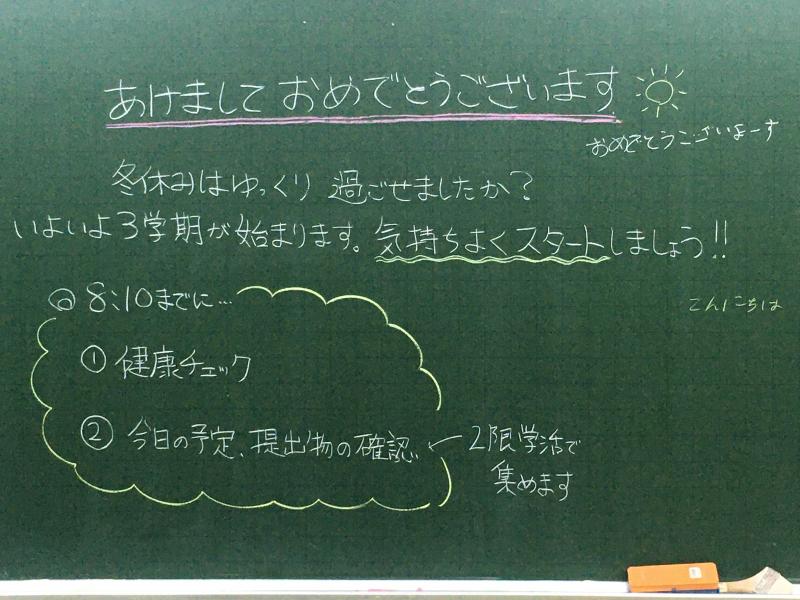 あけまして おめでとうございます
おめでとうございまーす
冬休みはゆっくり 過ごせましたか?
いよいよ3学期が始まります。気持ちよくスタートしましょう!!
◎ 8:10までに…
こんにちは
① 健康チェック
② 今日の予定、提出物の確認 ← 2限学活で
集めます